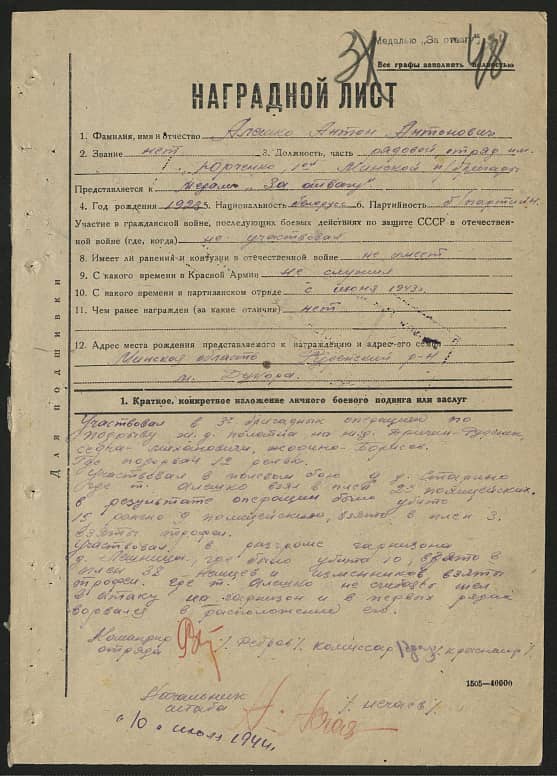 Медалью „За отвагу"
Все графы заполнять полностью
НАГРАДНОЙ ЛИСТ
1. Фамилия, имя и отчество Алешко Антон Антонович
2. Звание нет 3. Должность, часть рядовой отряд им.
1ой Минской п/бригады
Представляется к медали „За отвагу"
4. Год рождения 1928 5. Национальность белорусс 6. Партийность б/партийн.
Участие в гражданской войне, последующих боевых действиях по защите СССР в отечествен-
ной войне (где, когда) не участвовал
8. Имеет ли ранения и контузии в отечественной войне не имеет
9. С какого времени в Красной Армии не служил
10. С какого времени в партизанском отряде с июня 1943г.
11. Чем ранее награжден (за какие отличия) нет
12. Адрес места рождения представляемого к награждению и адрес его семьи
Минская область р-н
м. Дукора.
Для подшивки
1. Краткое, конкретное изложение личного боевого подвига или заслуг
Участвовал в 3х бригадных операциях по
подрыву ж.д. полотна на
Жодино-Борисов.
Где подорвал 12 рельс.
Участвовал в полевом бою в д. Старино
где т. Алешко взял в плен 2х полицейских.
в результате операции было убито
15 ранено 9 полицейских, взято в плен 3.
взяты трофеи.
Участвовал в разгроме гарнизона
д. где было убито 10, взято в
плен 32 немцев и изменников взяты
трофеи. где т. Алешко не шел
в атаку на гарнизон и в первых рядах
ворвался в расположение его.
Командир
отряда /Петров/ Комиссар
Начальник
штаба
"10" июля 1944г.
1505—40000